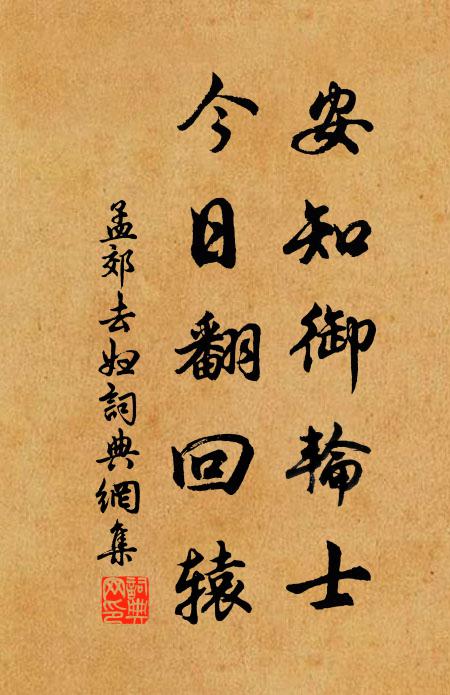 安知御輪士
今日翻回辕
孟郊去妇詞典網集
詞典网印